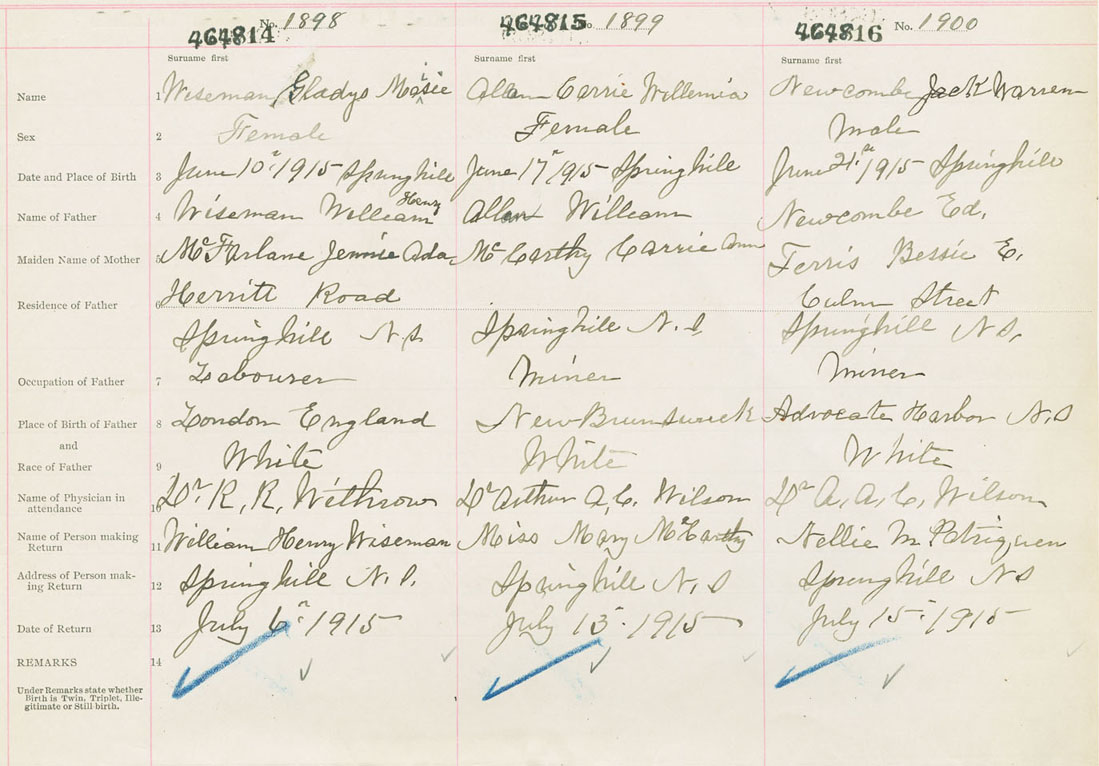 464814 No. 1898 464815 No. 1899 464816 No. 1900
Surname first Surname first Surname first
Name 1 Wiseman Gladys Maisie Allan Carrie Willemia Newcombe Jack Warren
Sex 2 Female Female Male
Date and Place of Birth 3 June 10th 1915 Springhill June 17th 1915 Springhill June 21st 1915 Springhill
Name of Father 4 Wiseman William Henry Allan William Newcombe Ed.
Maiden Name of Mother 5 McFarlane Jennie Ada McCarthy Carrie Ann Ferris Bessie E.
Residence of Father 6 Herritt Road Culm Street
Springhill N.S Springhill N.S Springhill N.S.
Occupation of Father 7 Labourer Miner Miner
Place of Birth of Father 8 London England New Brunswick Advocate Harbor N.S
and
Race of Father 9 White White White
Name of Physician in
attendance 10 Dr. R. R. Withrow Dr Arthur A. C. Wilson Dr A. A. C. Wilson
Name of Person making
Return 11 William Henry Wiseman Miss Mary McCarthy Nellie M. Patriquen
Address of Person mak-
ing Return 12 Springhill N.S. Springhill N.S Springhill N.S
Date of Return 13 July 6th 1915 July 13. 1915 July 15. 1915
REMARKS 14
Under Remarks state whether
Birth is Twin, Triplet, Ille-
gitimate or Still birth.